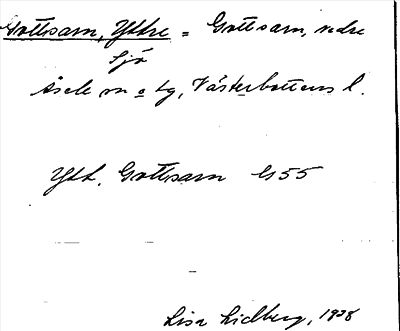 Gottsarn, Yttre = Gottsarn, nedre
Sjö
Åsele sn o lg, Västerbottens l.
Ytt. Gottsarn G 55
Lisa Lidberg, 1938